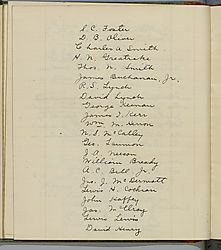 S. C. Foster
D. B. Oliver
Charles A Smith
H. N. Greatrake
Thos. N. Smith
James Buchanan, Jr.
R. S. Lynch
David Lynch
George Keenan
James I. Kerr
Wm M. Heron
N. S. McCalley
Geo. Launnon
J. A. Neeson
William Bready
A. C. Bell Jr.
Jas. J. McDermott
Lewis H. Cochran
John Haffey
Jas. McElroy
Lewis Lewis
David Henry